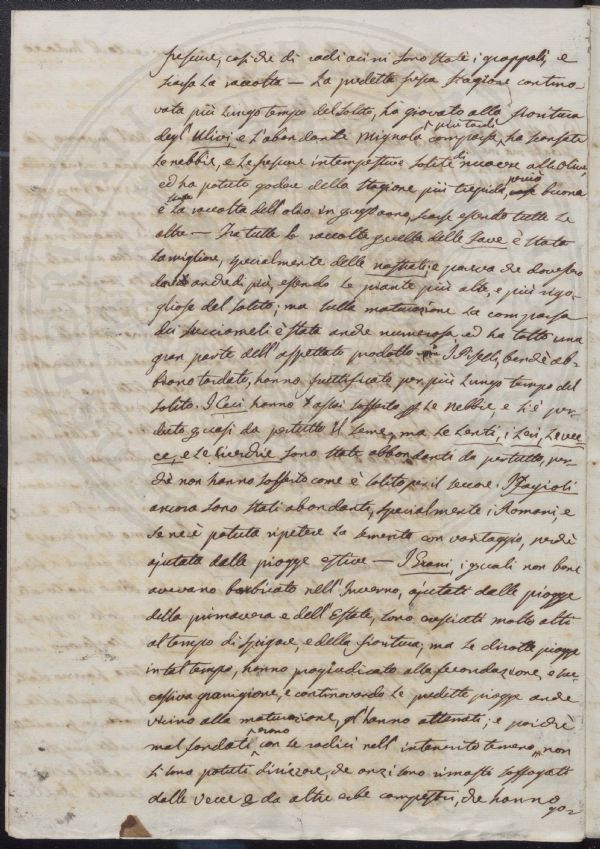 frescure, così che di radi acini sono stati i grappoli, e
scarsa la raccolta — La predetta fresca stagione continuo-
vata più lungo tempo del solito, ha giovato alla fioritura
degl'Ulivi e l'abondante mignola più tardi comparsa, ha scansate
le nebbie, e le frescure intempestive solite nuocere alle Olive,
ed ha potuto godere della stagione più tiepida, perciò buona
è stata la raccolta dell'olio in quest'anno, scarse essendo tutte le
altre — Fra tutte le raccolte quella delle Fave è stata
la migliore, specialmente delle nostrali; e pareva che dovessero
darne anche di più, essendo le piante più alte, e più rigo-
gliose del solito; ma sulla maturazione la comparsa
dei succiameli è stata anche numerosa ed ha tolto una
gran parte dell'aspettato prodotto — I Piselli, benchè ab-
biano tardato, hanno fruttificato per più lungo tempo del
solito. I Ceci hanno assai sofferto le Nebbie, e si è per-
duto quasi da pertutto il seme, ma le Lenti, i Leri, le vec-
ce, e le Cicerchie sono state abbondanti da pertutto, per-
chè non hanno sofferto come è solito per il seccore. I Fagioli
ancora sono stati abondanti, specialmente i Romani, e
se ne è potuta ripetere la sementa con vantaggio, perchè
ajutata dalle piogge estive — I Grani, i quali non bene
avevano barbicato nell'Inverno, ajutati dalle piogge
della primavera e dell'Estate, sono cresciuti molto alti
al tempo di spigare, e della fioritura, ma le dirotte piogge
in tal tempo, hanno pregiudicato alla fecondazione, e suc-
cessiva granigione, e continovando le predette piogge anche
vicino alla maturazione, gl'hanno allettati; e poichè
mal fondati erano con le radici nell'intenerito terreno, non
si sono potuti dirizzare, che anzi sono rimasti soffogati
dalle Vecce e da altre erbe campestri, che hanno
go=